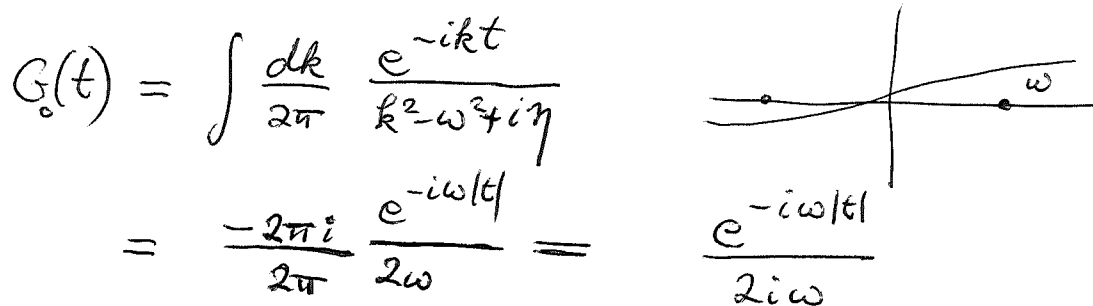 G₀(t) = ∫ dk/2π e^{-ikt}/(k²-ω²+iη)
ω
= -2πi/2π e^{-iω|t|}/2ω = e^{-iω|t|}/2iω